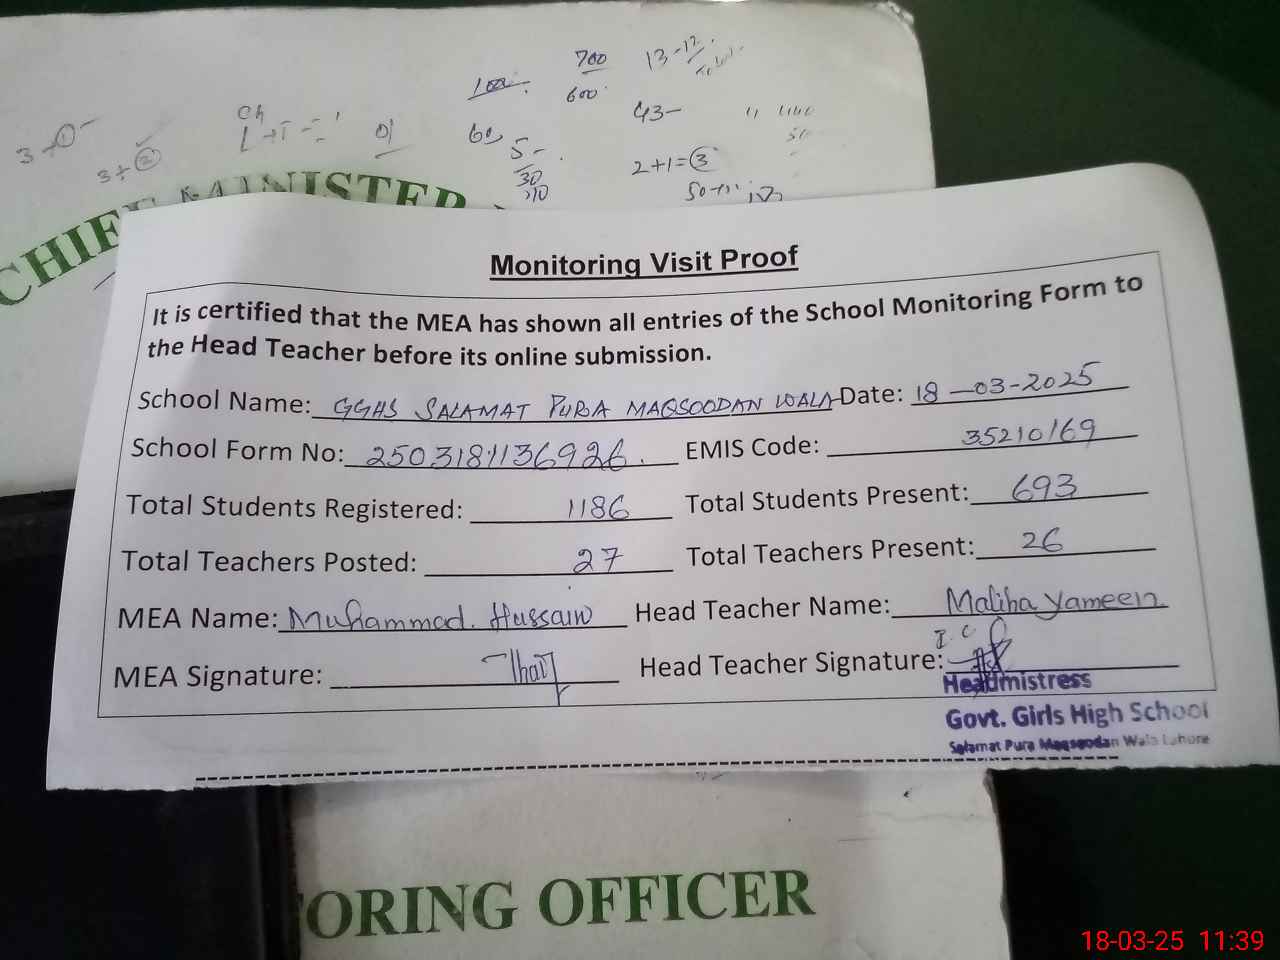 700
100
600
13-12
43-
3+1-
3+2
Ch
01
60
5-
30
2+1=3
CHIEF MINISTER
Monitoring Visit Proof
It is certified that the MEA has shown all entries of the School Monitoring Form to
the Head Teacher before its online submission.
School Name: GGHS SALAMAT PURA MAQSOODAN WALA Date: 18-03-2025
School Form No: 2503181136926. EMIS Code: 35210169
Total Students Registered: 1186 Total Students Present: 693
Total Teachers Posted: 27 Total Teachers Present: 26
MEA Name: Muhammad. Hussain Head Teacher Name: Maliha Yameen
MEA Signature: Head Teacher Signature:
Headmistress
Govt. Girls High School
Salamat Pura Maqsoodan Wala Lahore
ORING OFFICER
18-03-25 11:39